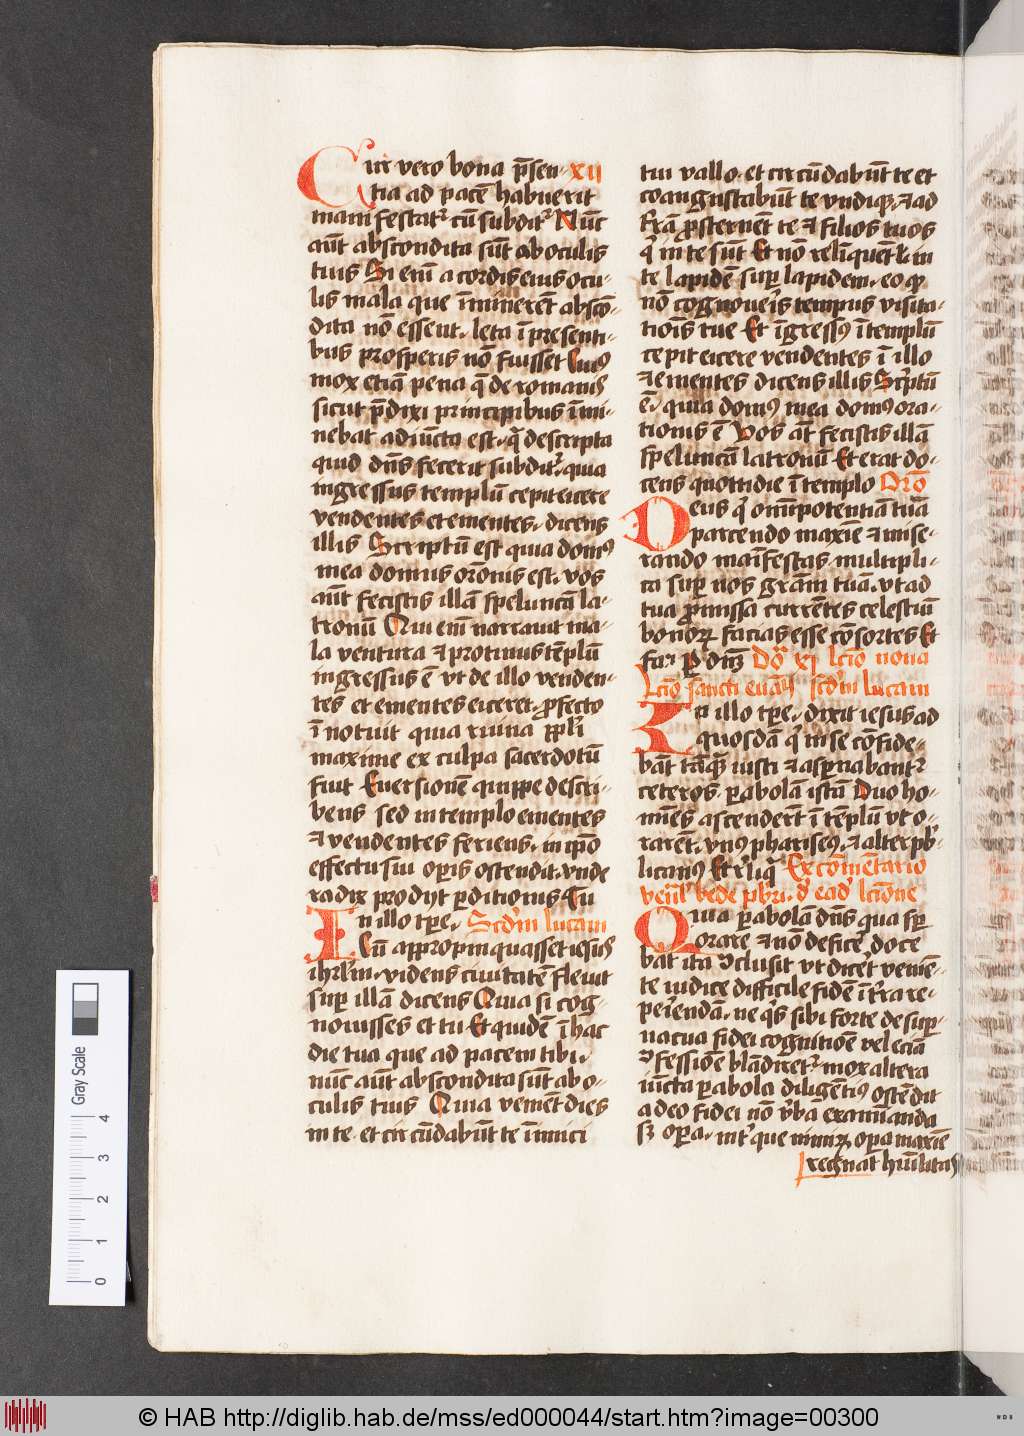 Cur vero bona p̄sen- xij
tia ad pacē habuerit
manifestat᷑ cū subdit᷑ Nūc
aūt abscondita sūt ab oculis
tuis Si enī a cordis eius ocu-
lis mala que īminerēt abscō-
dita nō essent. leta ī presenti-
bus prosperis nō fuisset Cuiꝰ
mox etiā pena q̄ de romanis
sicut p̄dixi principibus īmi-
nebat adiūcta est. q̄ descripta
quid dn̄s fecerit subdit᷑. quia
ingressus templū cepit eicere
vendentes et ementes. dicens
illis Scriptū est quia domꝰ
mea domus orōnis est. vos
aūt fecistis illā speluncā la-
tronū Qui enī narrauit ma-
la ventura ⁊ protinus tēplū
ingressus ē vt de illo venden-
tes et ementes eiceret. profecto
īnotuit quia ruina ppl̄i
maxime ex culpa sacerdotū
fuit Euersionē quippe descri-
bens sed in templo ementes
⁊ vendentes feriens. in ip̄o
effectu sui operis ostendit. vnde
radix prodijt perditionis Tu
In illo tp̄e. Scd̄m lucam
Cū appropinquasset iesus
ihrl̄m. videns ciuitatē fleuit
super illā dicens Quia si cog-
nouisses et tu Et quidē ī hac
die tua que ad pacem tibi.
nūc aūt abscondita sūt ab o-
culis tuis Quia veniēt dies
in te. et circūdabūt te īimici
tui vallo. et circūdabūt te et
coangustabūt te vndiqꝫ. ⁊ ad
t̄rā prosternēt te ⁊ filios tuos
qͥ in te sūt Et nō relīquent in
te lapidē super lapidem. eo qͥ
nō cognoueris tempus visita-
tiōis tue Et īgressꝰ ī templū
cepit eicere vendentes ī illo
⁊ ementes dicens illis Scͥptū
ē. quia domꝰ mea domꝰ ora-
tionis ē Vos aūt fecistis illā
speluncā latronū Et erat do-
cens quottidie ī templo Orō
Deus qͥ omīpotentiā tuā
parcendo maxīe ⁊ mise-
rando maīfestas. multipli-
ca super nos grām tuā. vt ad
tua promissa currētes celestiū
bonorꝝ facias esse cōsortes Et
fa᷑ ꝑ Domꝫ Do᷑ xj lcīo nona
Lcīo sancti euāḡ scd̄m lucam
In illo tp̄e. dixit iesus ad
quosdā qͥ in se cōfide-
bāt tāqͣ iusti ⁊ aspernabant᷑
ceteros parabolā istā Duo ho-
mīes ascenderēt ī tēplū vt o-
rarēt. vnꝰ phariseꝰ. ⁊ alter pub-
licanꝰ Et rͥliqͣ Ex cōmētario
veñl bede pbr̄i. d᷑ ead᷑ lcīone
Quia parabolā dn̄s qua semper
orare ⁊ nō deficē. doce
bat ita ꝯclusit vt dicēt venien-
te iudice difficile fidē ī t̄ra re-
periendā. ne qͥs sibi forte de super-
uacua fidei cognitiōe vel etiā
ꝯfessiōe blādiret᷑. mox altera
iūcta parabola diligētiꝰ ostēdit
a deo fidei nō v̄ba examinanda
sꝫ opera. īt᷑ que nimirꝝ opera maxīe
regnat humilitas
Gray Scale
0 1 2 3 4
© HAB http://diglib.hab.de/mss/ed000044/start.htm?image=00300